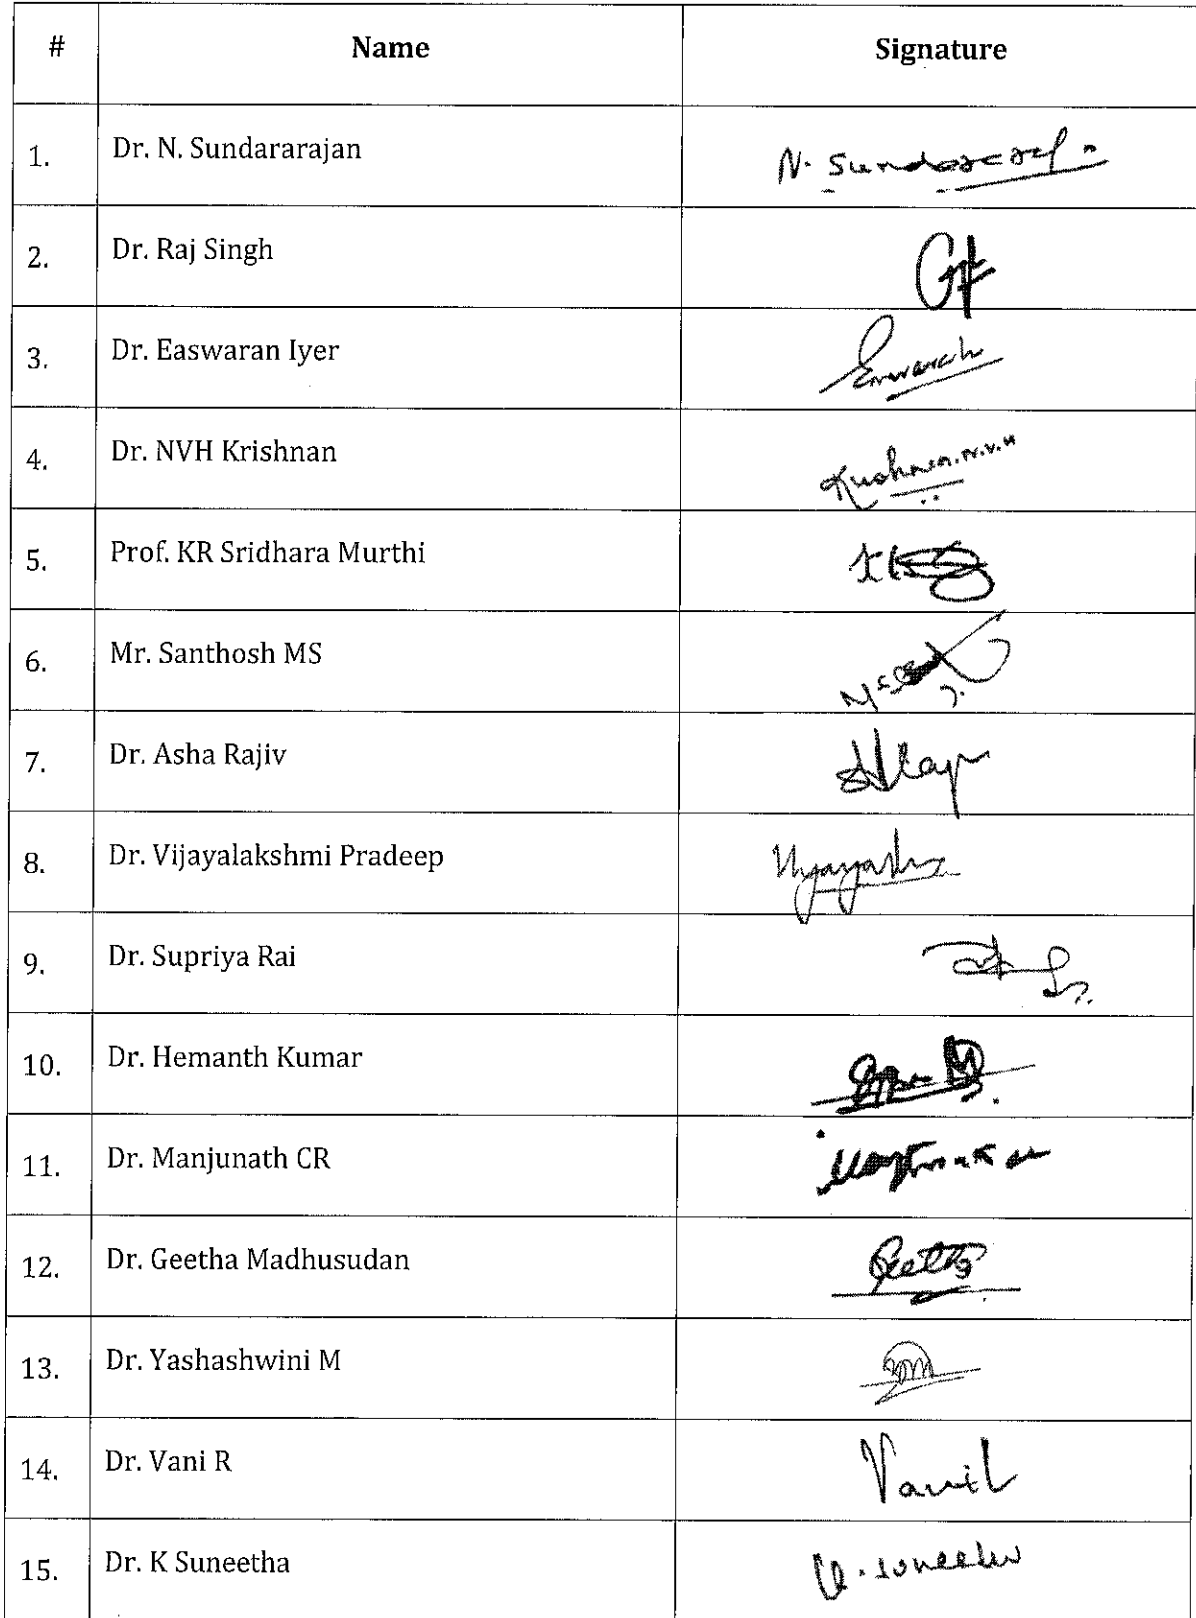 # Name Signature
1. Dr. N. Sundararajan N. Sundararaj
2. Dr. Raj Singh
3. Dr. Easwaran Iyer
4. Dr. NVH Krishnan Krishnan.N.V.H
5. Prof. KR Sridhara Murthi
6. Mr. Santhosh MS
7. Dr. Asha Rajiv
8. Dr. Vijayalakshmi Pradeep
9. Dr. Supriya Rai
10. Dr. Hemanth Kumar
11. Dr. Manjunath CR
12. Dr. Geetha Madhusudan Geetha
13. Dr. Yashashwini M
14. Dr. Vani R Vani R
15. Dr. K Suneetha K. Suneetha